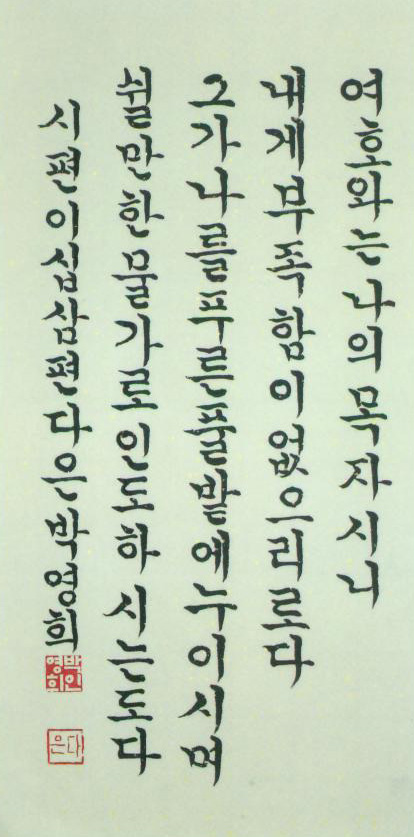 여호와는나의목자시니
내게부족함이없으리로다
그가나를푸른풀밭에누이시며
쉴만한물가로인도하시는도다
시편이십삼편다은박영희
박인영희
다은